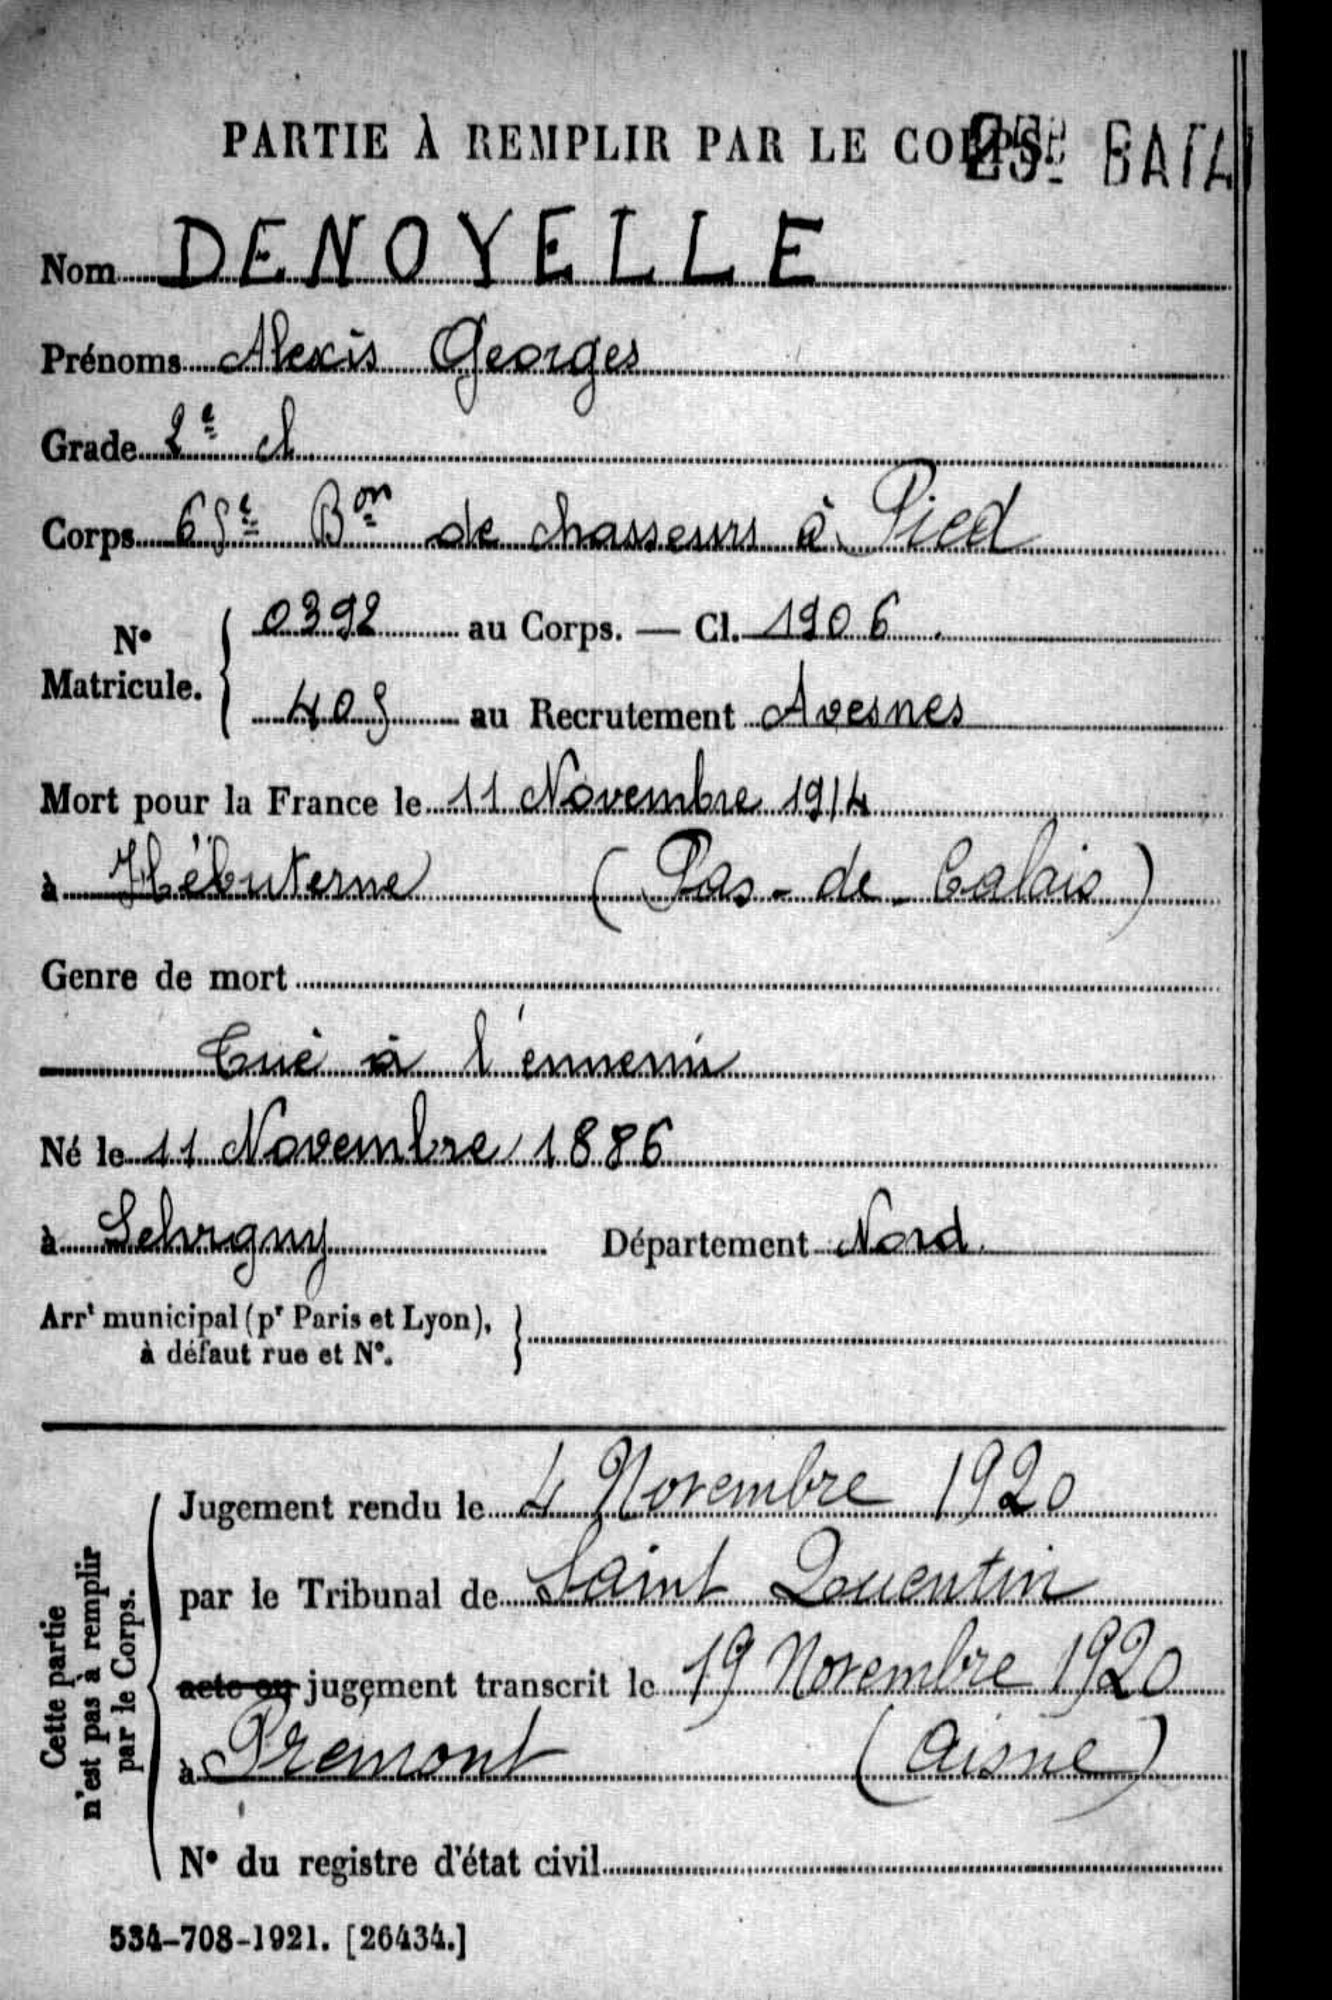 PARTIE À REMPLIR PAR LE CORPS.
25E BATAI
Nom DENOYELLE
Prénoms Alexis Georges
Grade 2e cl
Corps 65e Bon de chasseurs à Pied
No Matricule. { 0392 au Corps. — Cl. 1906.
405 au Recrutement Avesnes
Mort pour la France le 11 Novembre 1914
à Hébuterne (Pas-de-Calais)
Genre de mort
Tué à l'ennemi
Né le 11 Novembre 1886
à Selvigny Département Nord
Arrt municipal (pr Paris et Lyon), à défaut rue et No. }
Cette partie n'est pas à remplir par le Corps.
Jugement rendu le 4 Novembre 1920
par le Tribunal de Saint Quentin
acte ou jugement transcrit le 19 Novembre 1920
à Prémont (Aisne)
No du registre d'état civil
534-708-1921. [26434.]